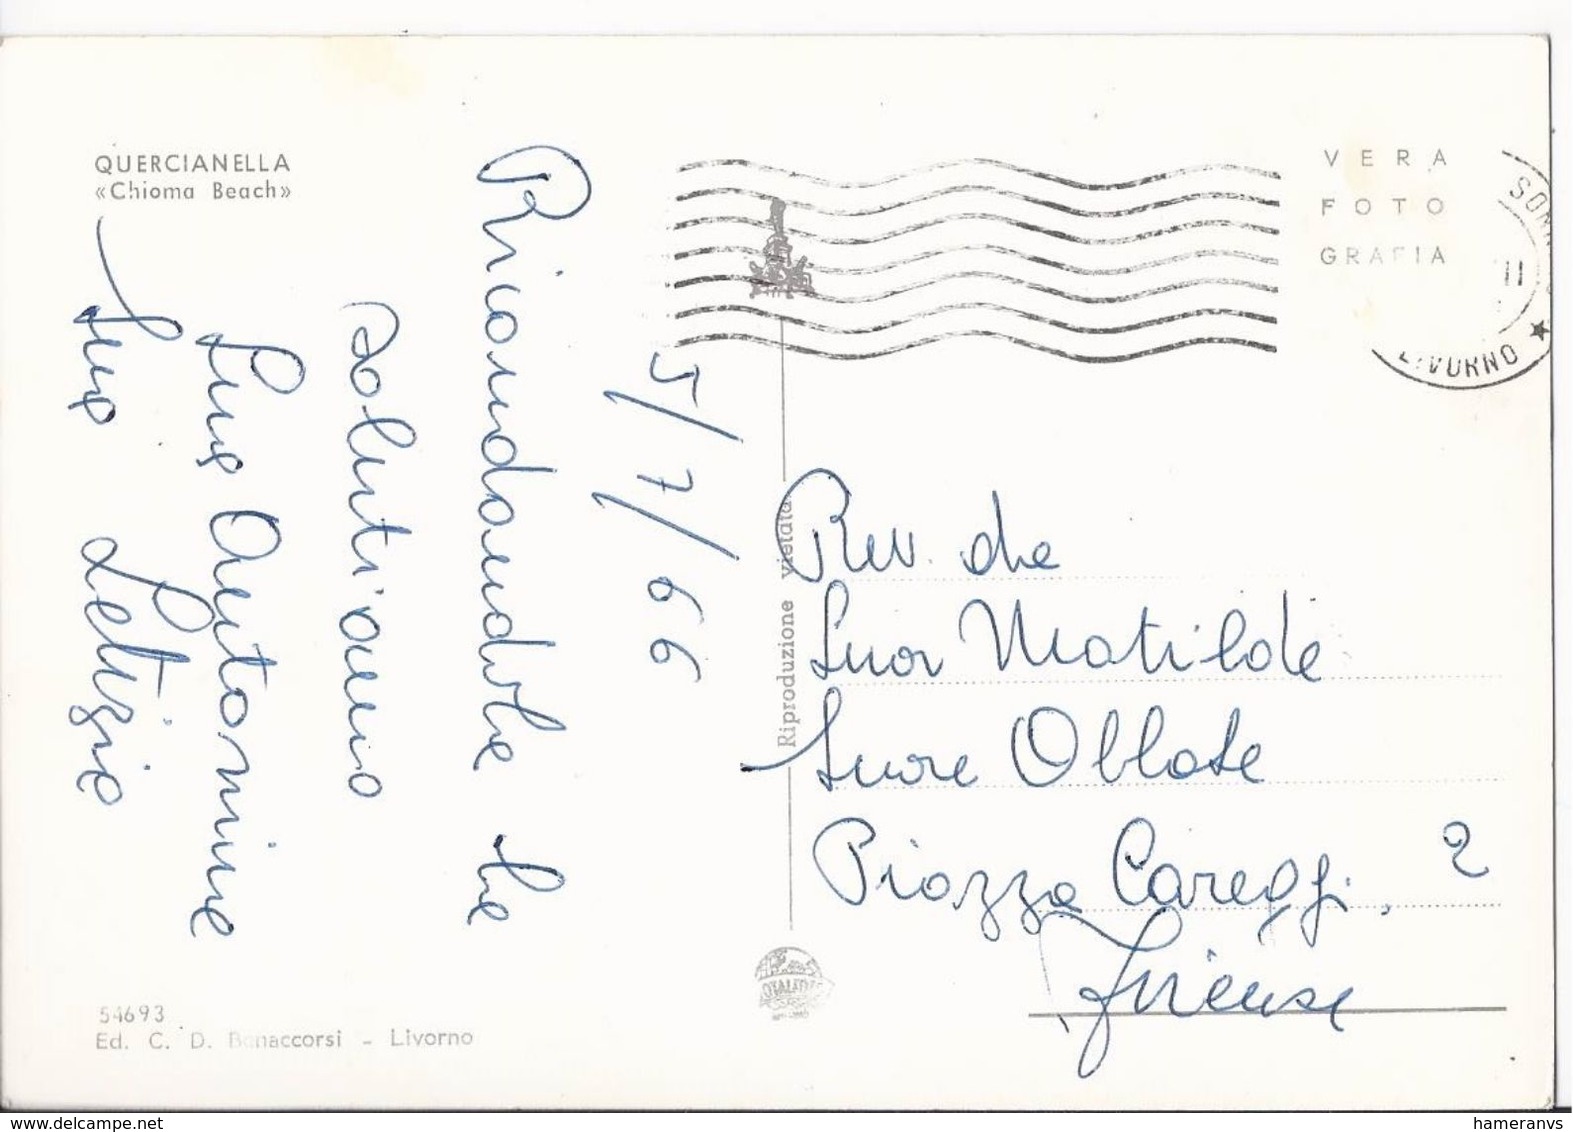 QUERCIANELLA
«Chioma Beach»
5/7/66
Ricordandole
saluti
Letizia
VERA
FOTO
GRAFIA
LIVORNO
11
Riproduzione vietata
Rev. da
Suor Matilde
Suore Oblate
Piazza Careggi, 2
Firenze
54693
Ed. C. D. Bonaccorsi - Livorno
www.delcampe.net
hameranvs